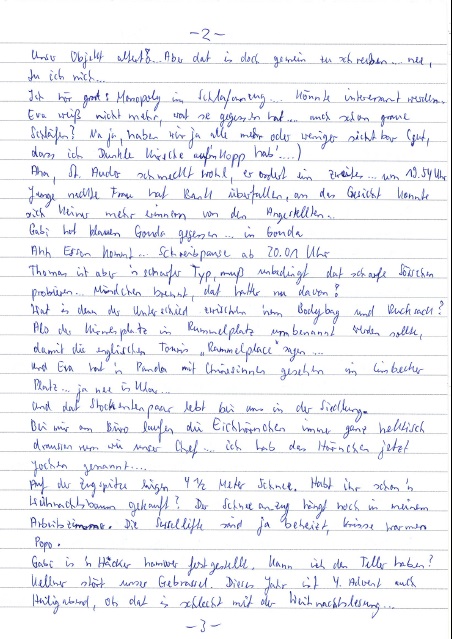 -2-
Unser Objekt altert?... Aber dat is doch gemein zu schreiben... nee,
du ich mich...
Ich hör grad: Monopoly im Schlafanzug.... Könnte interessant werden.
Eva weiß nicht mehr, wat se gegessen hat... auch schon graue
Schläfen? Na ja, haben wir ja alle mehr oder weniger sichtbar (gut,
dass ich Dunkle Kirsche auf'm Kopp hab'....)
Aha, St. Andor schmeckt wohl, er ordert ein zweites... um 19.54 Uhr
Junge nackte Frau hat Bank überfallen, an das Gesicht konnte
sich keiner mehr erinnern von den Angestellten..
Gabi hat blauen Gouda gegessen... in Gouda
Ahh Essen kommt... Schreibpause ab 20.01 Uhr
Thomas ist aber 'n scharfer Typ, muß unbedingt dat scharfe Sößchen
probieren... Mündchen brennt, dat hatter nu davon?
Wat is denn der Unterschied zwischen 'nem Bodybag und Rucksack?
Also der Hirnerplatz in Rummelplatz umbenannt werden sollte,
damit die englischen Touris „Rummelplace" sagen...
und Eva hat 'n Panda mit Chinesinnen gesehen im Einbecker
Platz... ja nee is klar...
und dat Stockentenpaar lebt bei uns in der Siedlung.
Bei mir am Büro laufen die Eichhörnchen immer ganz hektisch
draussen rum wie unser Chef... ich hab das Hörnchen jetzt
Jochen genannt....
Auf der Zugspitze liegen 4 1/2 Meter Schnee. Habt ihr schon 'n
Weihnachtsbaum gekauft? Der Schneeanzug hängt noch in meinem
Arbeitszimmer. Die Sessellifte sind ja beheizt, krisse warmen
Popo.
Gabi is 'n Häcker hamwer festgestellt. Kann ich den Teller haben?
Kellner stört unser Gebrassel. Dieses Jahr ist 4. Advent auch
Heiligabend, oh dat is schlecht mit der Weihnachtslesung...
-3-